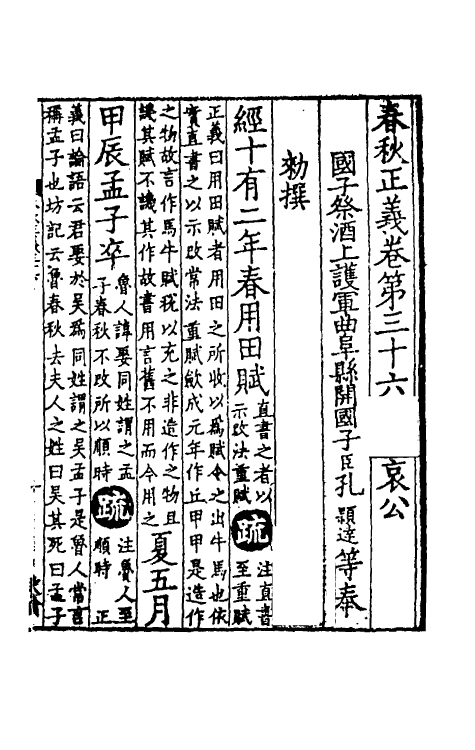 春秋正義卷第三十六　哀公
國子祭酒上護軍曲阜縣開國子臣孔穎達等奉
勑撰
經十有二年春用田賦直書之者以示改法重賦疏注直書至重賦
正義曰用田賦者用田之所收以爲賦令之出牛馬也依
實直書之以示改常法重賦歛成元年作丘甲甲是造作
之物故言作馬牛賦稅以充之非造作之物且
譏其賦不譏其作故書用言舊不用而今用之夏五月
甲辰孟子卒魯人諱娶同姓謂之孟子春秋不改所以順時疏注魯人至順時 正
義曰論語云君娶於吳爲同姓謂之吳孟子是魯人常言
稱孟子也坊記云魯春秋去夫人之姓曰吳其死曰孟子